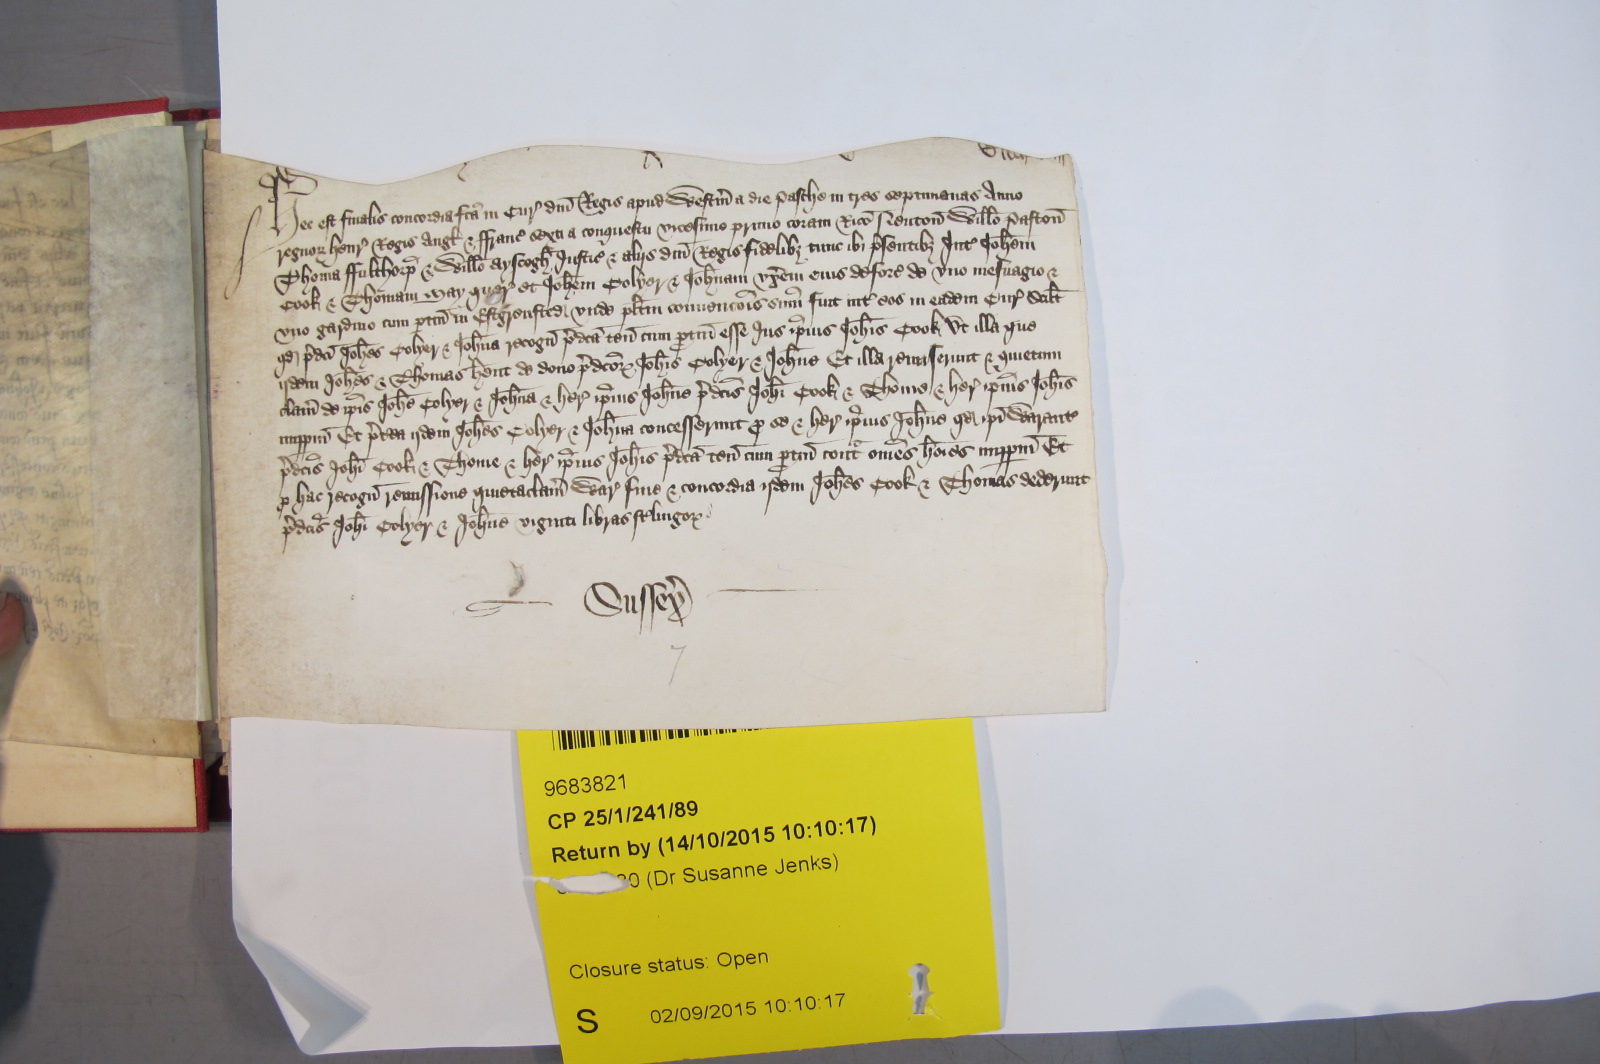 Hec est finalis concordia fca in Cur dni Regis apud Westm a die Pasche in tres septimanas Anno
regnor Henr Regis Angl & ffranc sexti a conquestu vicesimo primo coram Rico Neuton Willo Paston
Thoma ffulthorp & Willo Ayscogh Justic & aliis dni Regis fidelibz tunc ibi psentibz Int Johem
Cook & Thomam May quer et Johem Colyer & Johnam vxem eius deforc de vno mesuagio &
vno gardino cum ptin in Estgrensted vnde plitm convencois sum fuit int eos in eadem Cur Scilt
qd pdci Johes Colyer & Johna recogn pdca ten cum ptin esse Jus ipius Johis Cook Vt illa que
iidem Johes & Thomas hent de dono pdcor Johis Colyer & Johne Et illa remiserunt & quietum
clam de ipis Johe Colyer & Johna & her ipius Johne pdcis Johi Cook & Thome & her ipius Johis
imppm Et ptea iidem Johes Colyer & Johna concesserunt p se & her ipius Johne qd ipi Warant
pdcis Johi Cook & Thome & her ipius Johis pdca ten cum ptin cont omes hoies imppm Et
p hac recogn remissione quietaclam War fine & concordia iidem Johes Cook & Thomas dederunt
pdcis Johi Colyer & Johne viginti libras sterlingor
Sussex
7
9683821
CP 25/1/241/89
Return by (14/10/2015 10:10:17)
(Dr Susanne Jenks)
Closure status: Open
S 02/09/2015 10:10:17